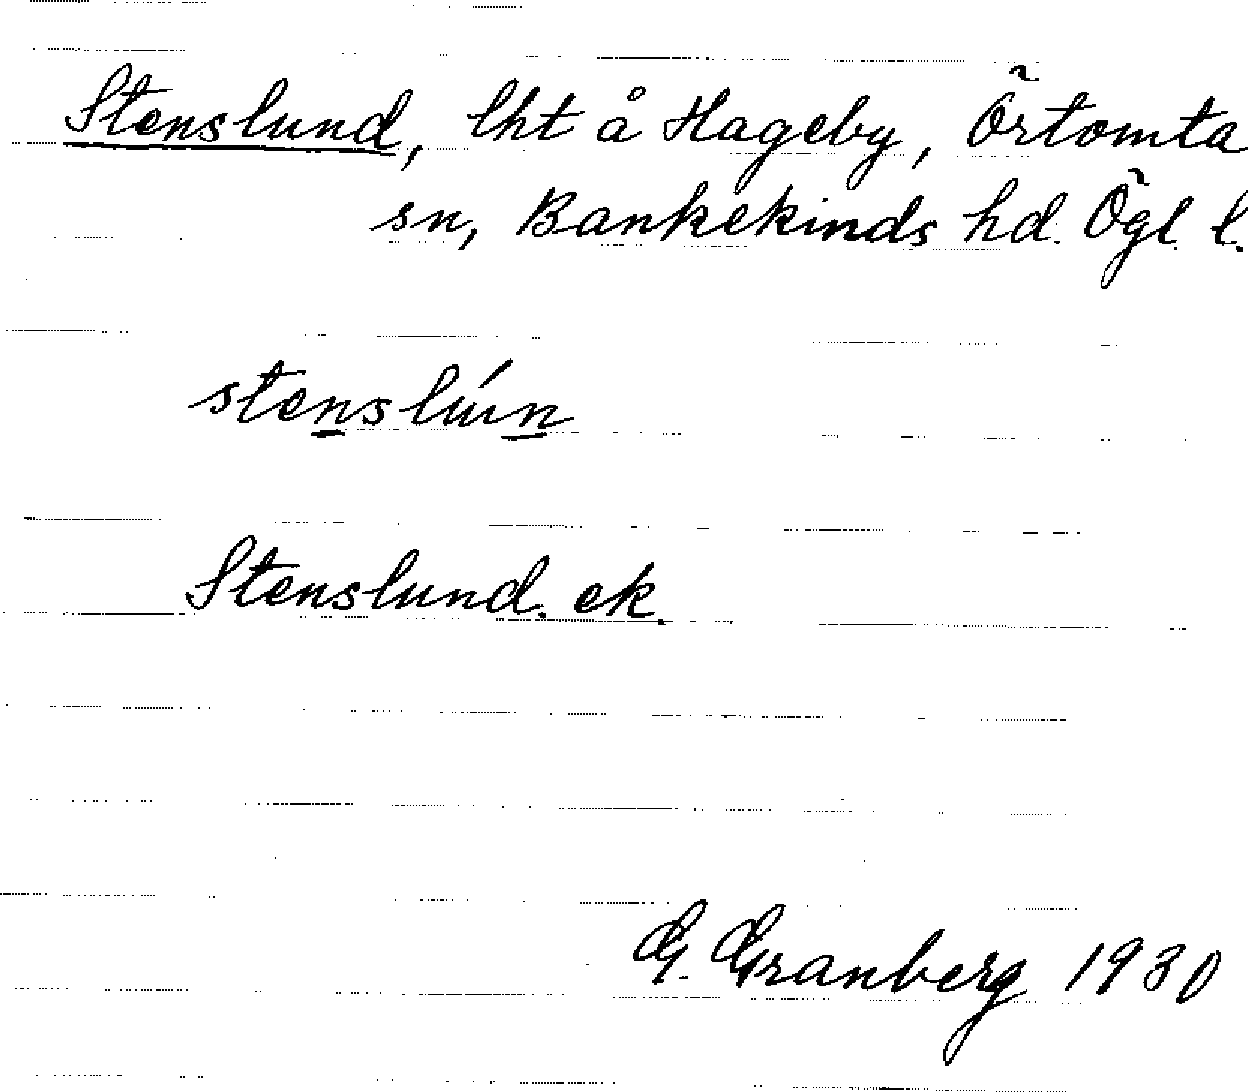 Stenslund, lht å Hageby, Örtomta
sn, Bankekinds hd. Ögl. l.
stenslún
Stenslund. ek.
G. Granberg 1930